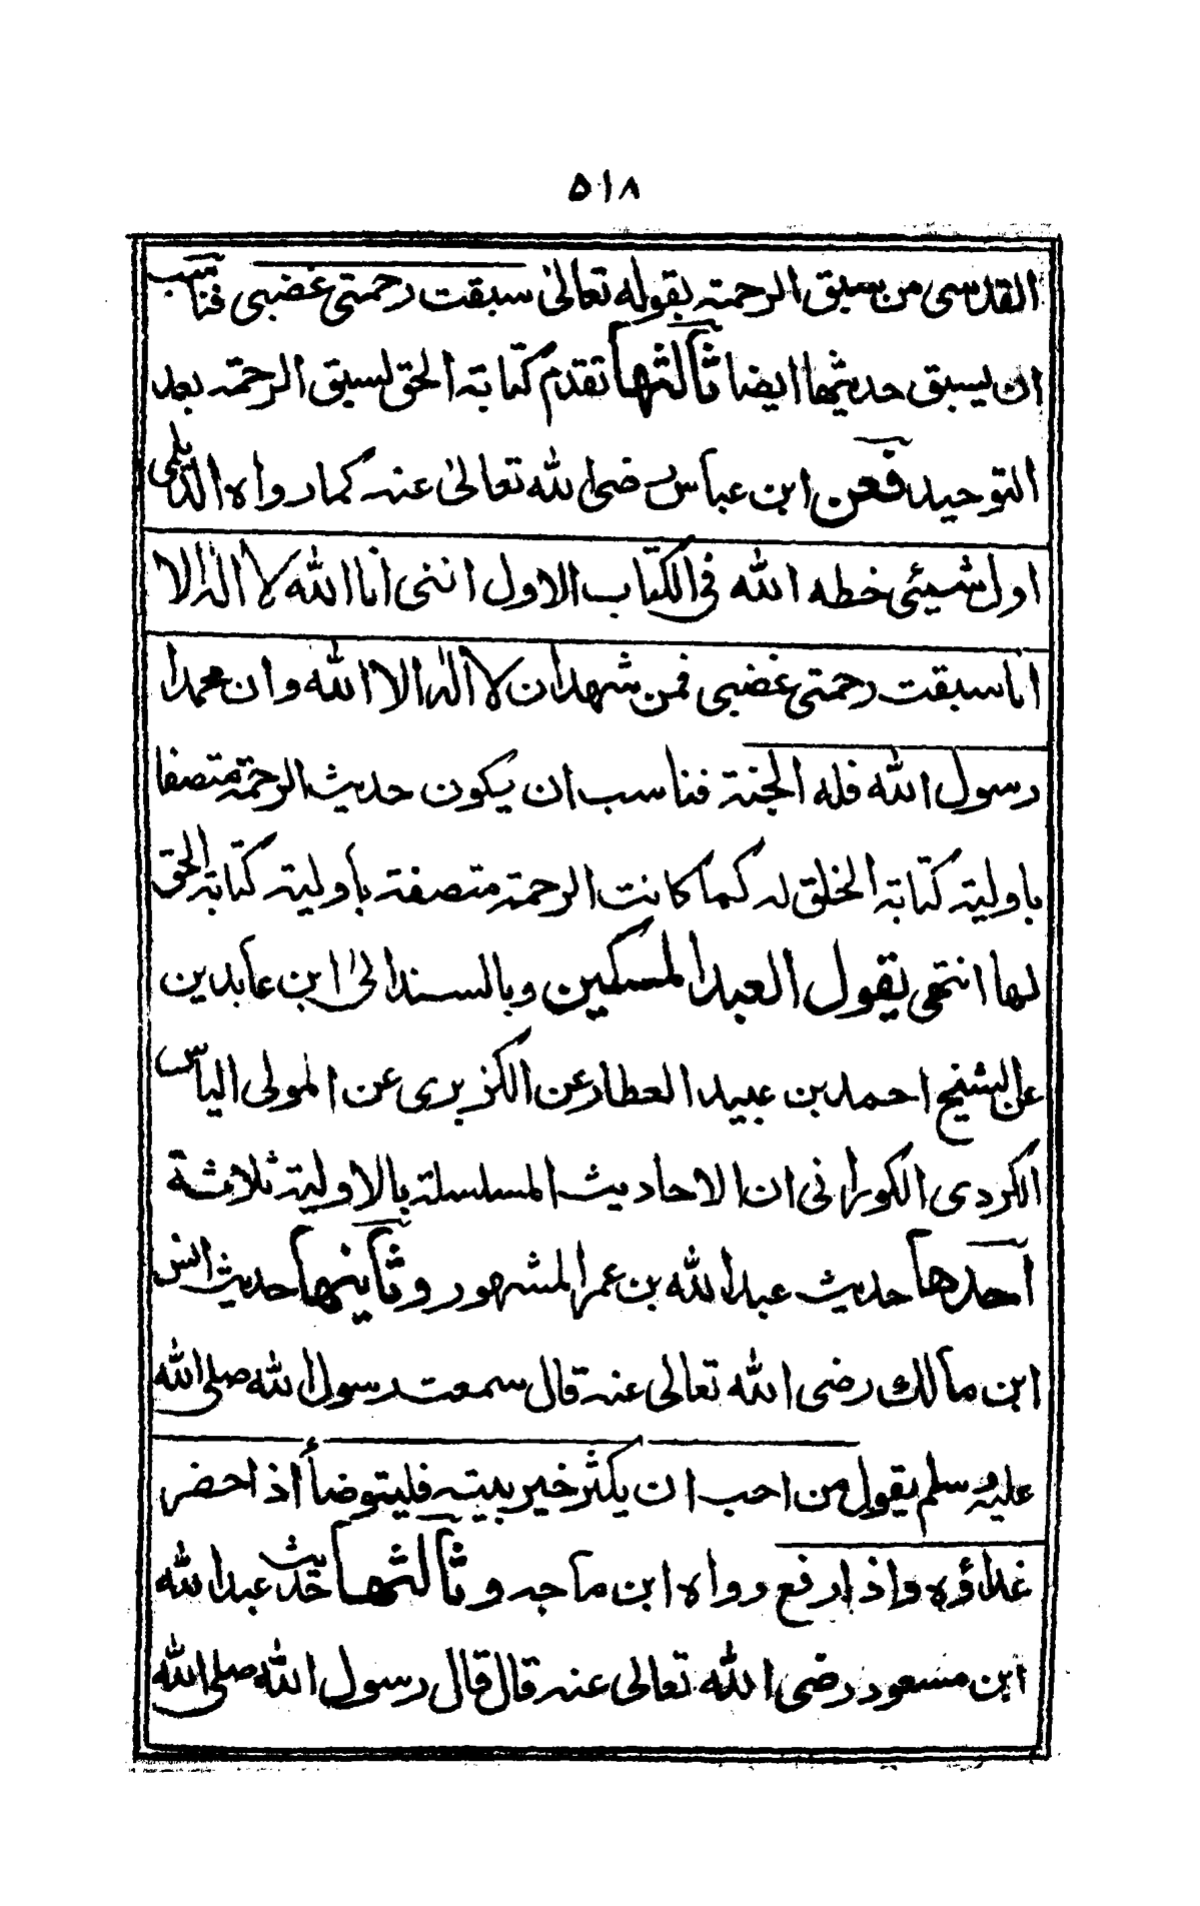 ٥١٨
القدسى من سبق الرحمة بقوله تعالىٰ سبقت رحمتى غضبى فناسب
ان يسبق حديثها ايضا ثالثها تقدم كتابة الحق لسبق الرحمة بعد
التوحيد فعن ابن عباس رضى الله تعالىٰ عنه كما رواه الديلمى
اول شيئى خطه الله فى الكتاب الاول اننى انا الله لا الٰه الا
انا سبقت رحمتى غضبى فمن شهد ان لا الٰه الا الله وان محمدا
رسول الله فله الجنة فناسب ان يكون حديث الرحمة متصفا
باولية كتابة الخلق له كما كانت الرحمة متصفة باولية كتابة الحق
لها انتهى يقول العبد المسكين وبالسند الىٰ ابن عابدين
عن الشيخ احمد بن عبيد العطار عن الكزبرى عن المولى الياس
الكردى الكورانى ان الاحاديث المسلسلة بالاولية ثلاثة
احدها حديث عبد الله بن عمر المشهور وثانيها حديث انس
ابن مالك رضى الله تعالى عنه قال سمعت رسول الله صلى الله
عليه وسلم يقول من احب ان يكثر خير بيته فليتوضأ اذا حضر
غداؤه واذا رفع رواه ابن ماجه وثالثها حديث عبد الله
ابن مسعود رضى الله تعالى عنه قال قال رسول الله صلى الله